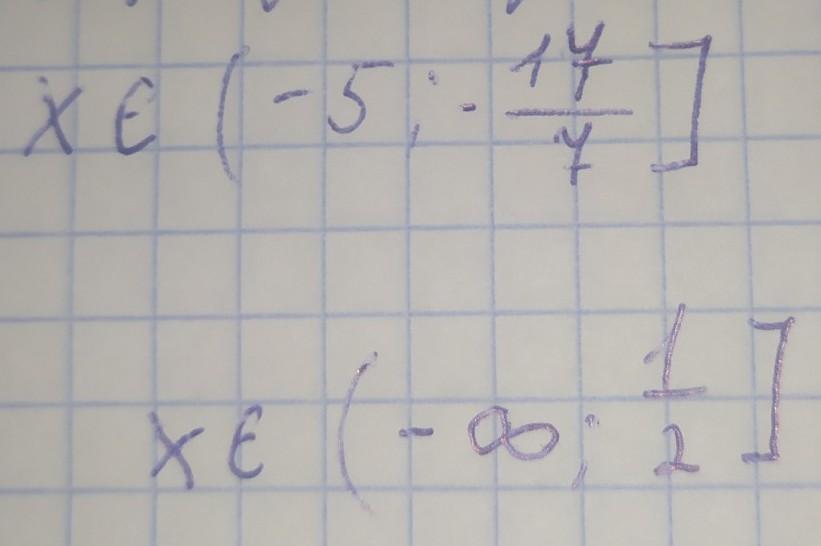 x ∈ (-5; -17/7]
x ∈ (-∞; 1/2]